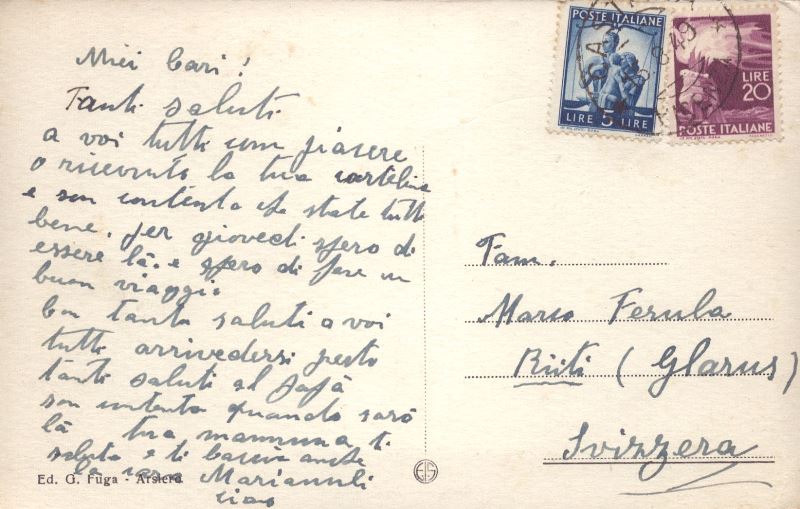 Miei Cari!
Tanti saluti
a voi tutti con piacere
o ricevuto la tua cartolina
e son contenta che state tutti
bene. per giovedi spero di
essere là. e spero di fare un
buon viaggio
con tanto saluti a voi
tutti arrivederci presto
tanti saluti al papà
son contenta quando sarò
là tua mamma ti
saluta e ti bacia anche
la cara
ciao
Ed. G. Fuga - Arsiero
POSTE ITALIANE
LIRE 5 LIRE
LIRE
20
POSTE ITALIANE
8.49
Fam.
Marco Ferula
Rüti (Glarus)
Svizzera